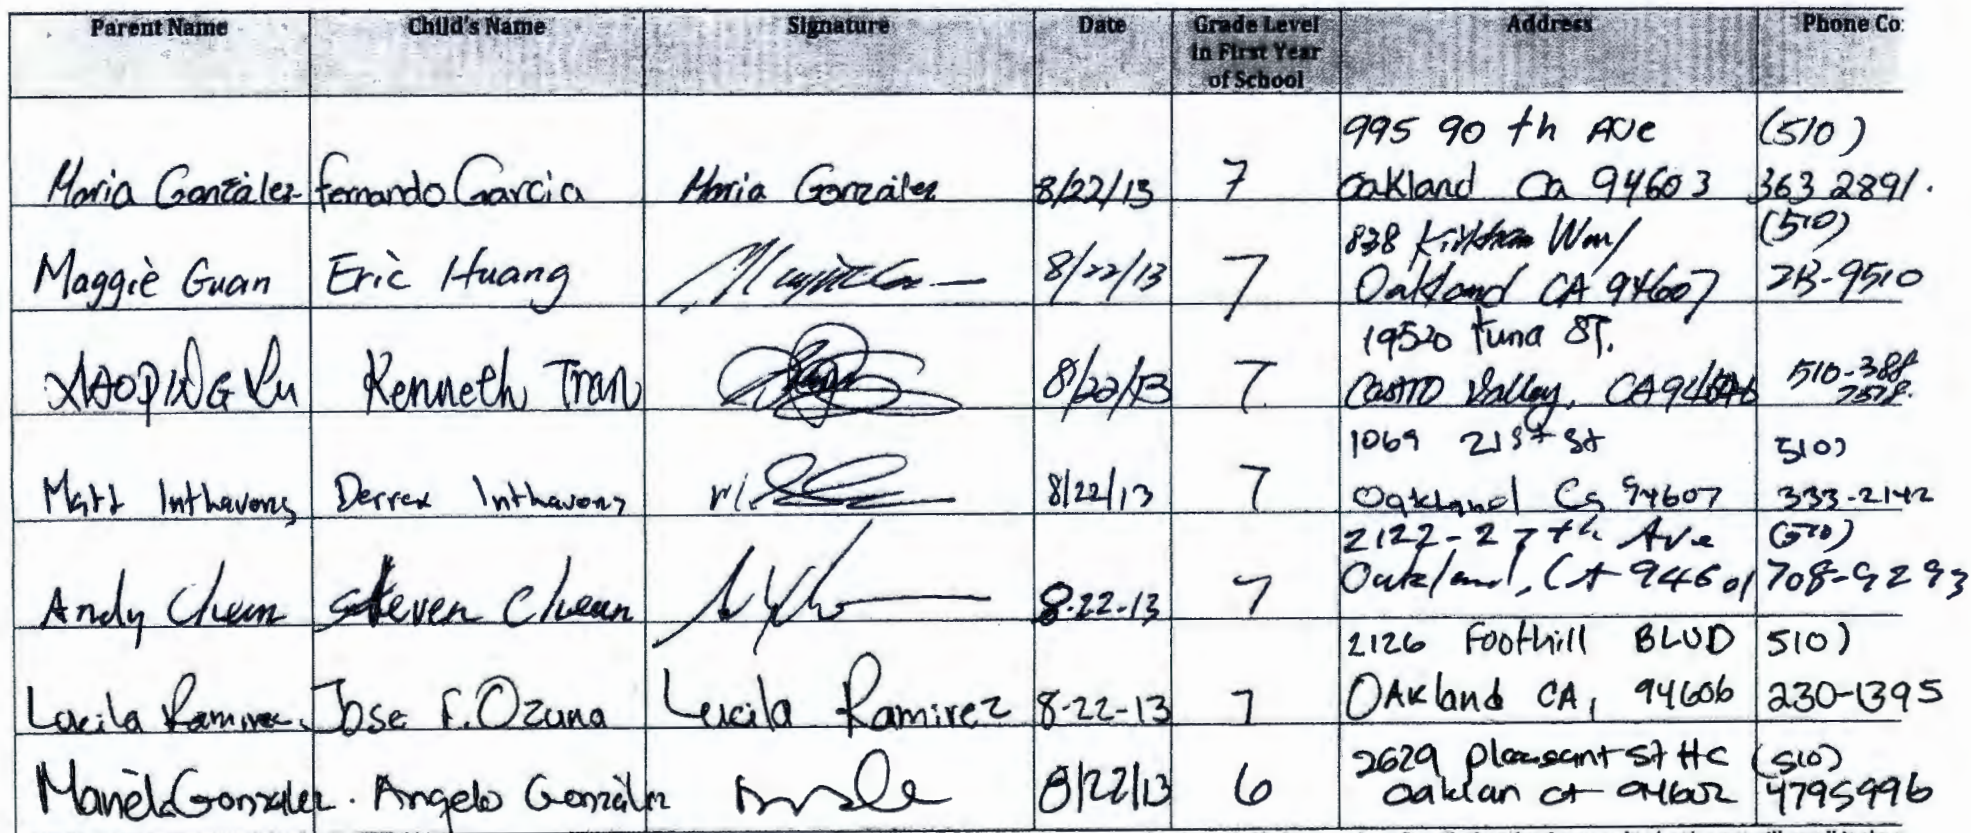 Parent Name Child's Name Signature Date Grade Level in First Year of School Address Phone Co
Maria González Fernando Garcia Maria González 8/22/13 7 995 90 th Ave Oakland Ca 94603 (510) 363 2891.
Maggie Guan Eric Huang 8/22/13 7 838 Oakland CA 94607 (510) -9510
XIAOPING Kenneth Tran 8/22/13 7 19520 tuna ST. Castro Valley, CA 94546 510-388
Matt Inthavong Derrex Inthavong 8/22/13 7 1069 21st St Oakland Ca 94607 510) 333-2142
Andy Cheun Steven Cheun 8-22-13 7 2122-27th Ave Oakland, CA 94601 (510) 708-9293
Lucila Ramirez. Jose F. Ozuna Lucila Ramirez 8-22-13 7 2126 Foothill BLVD OAkland CA, 94606 510) 230-1395
Gonzalez. Angelo González 8/22/13 6 2629 pleasant St Oaklan CA 94602 (510) 4795996